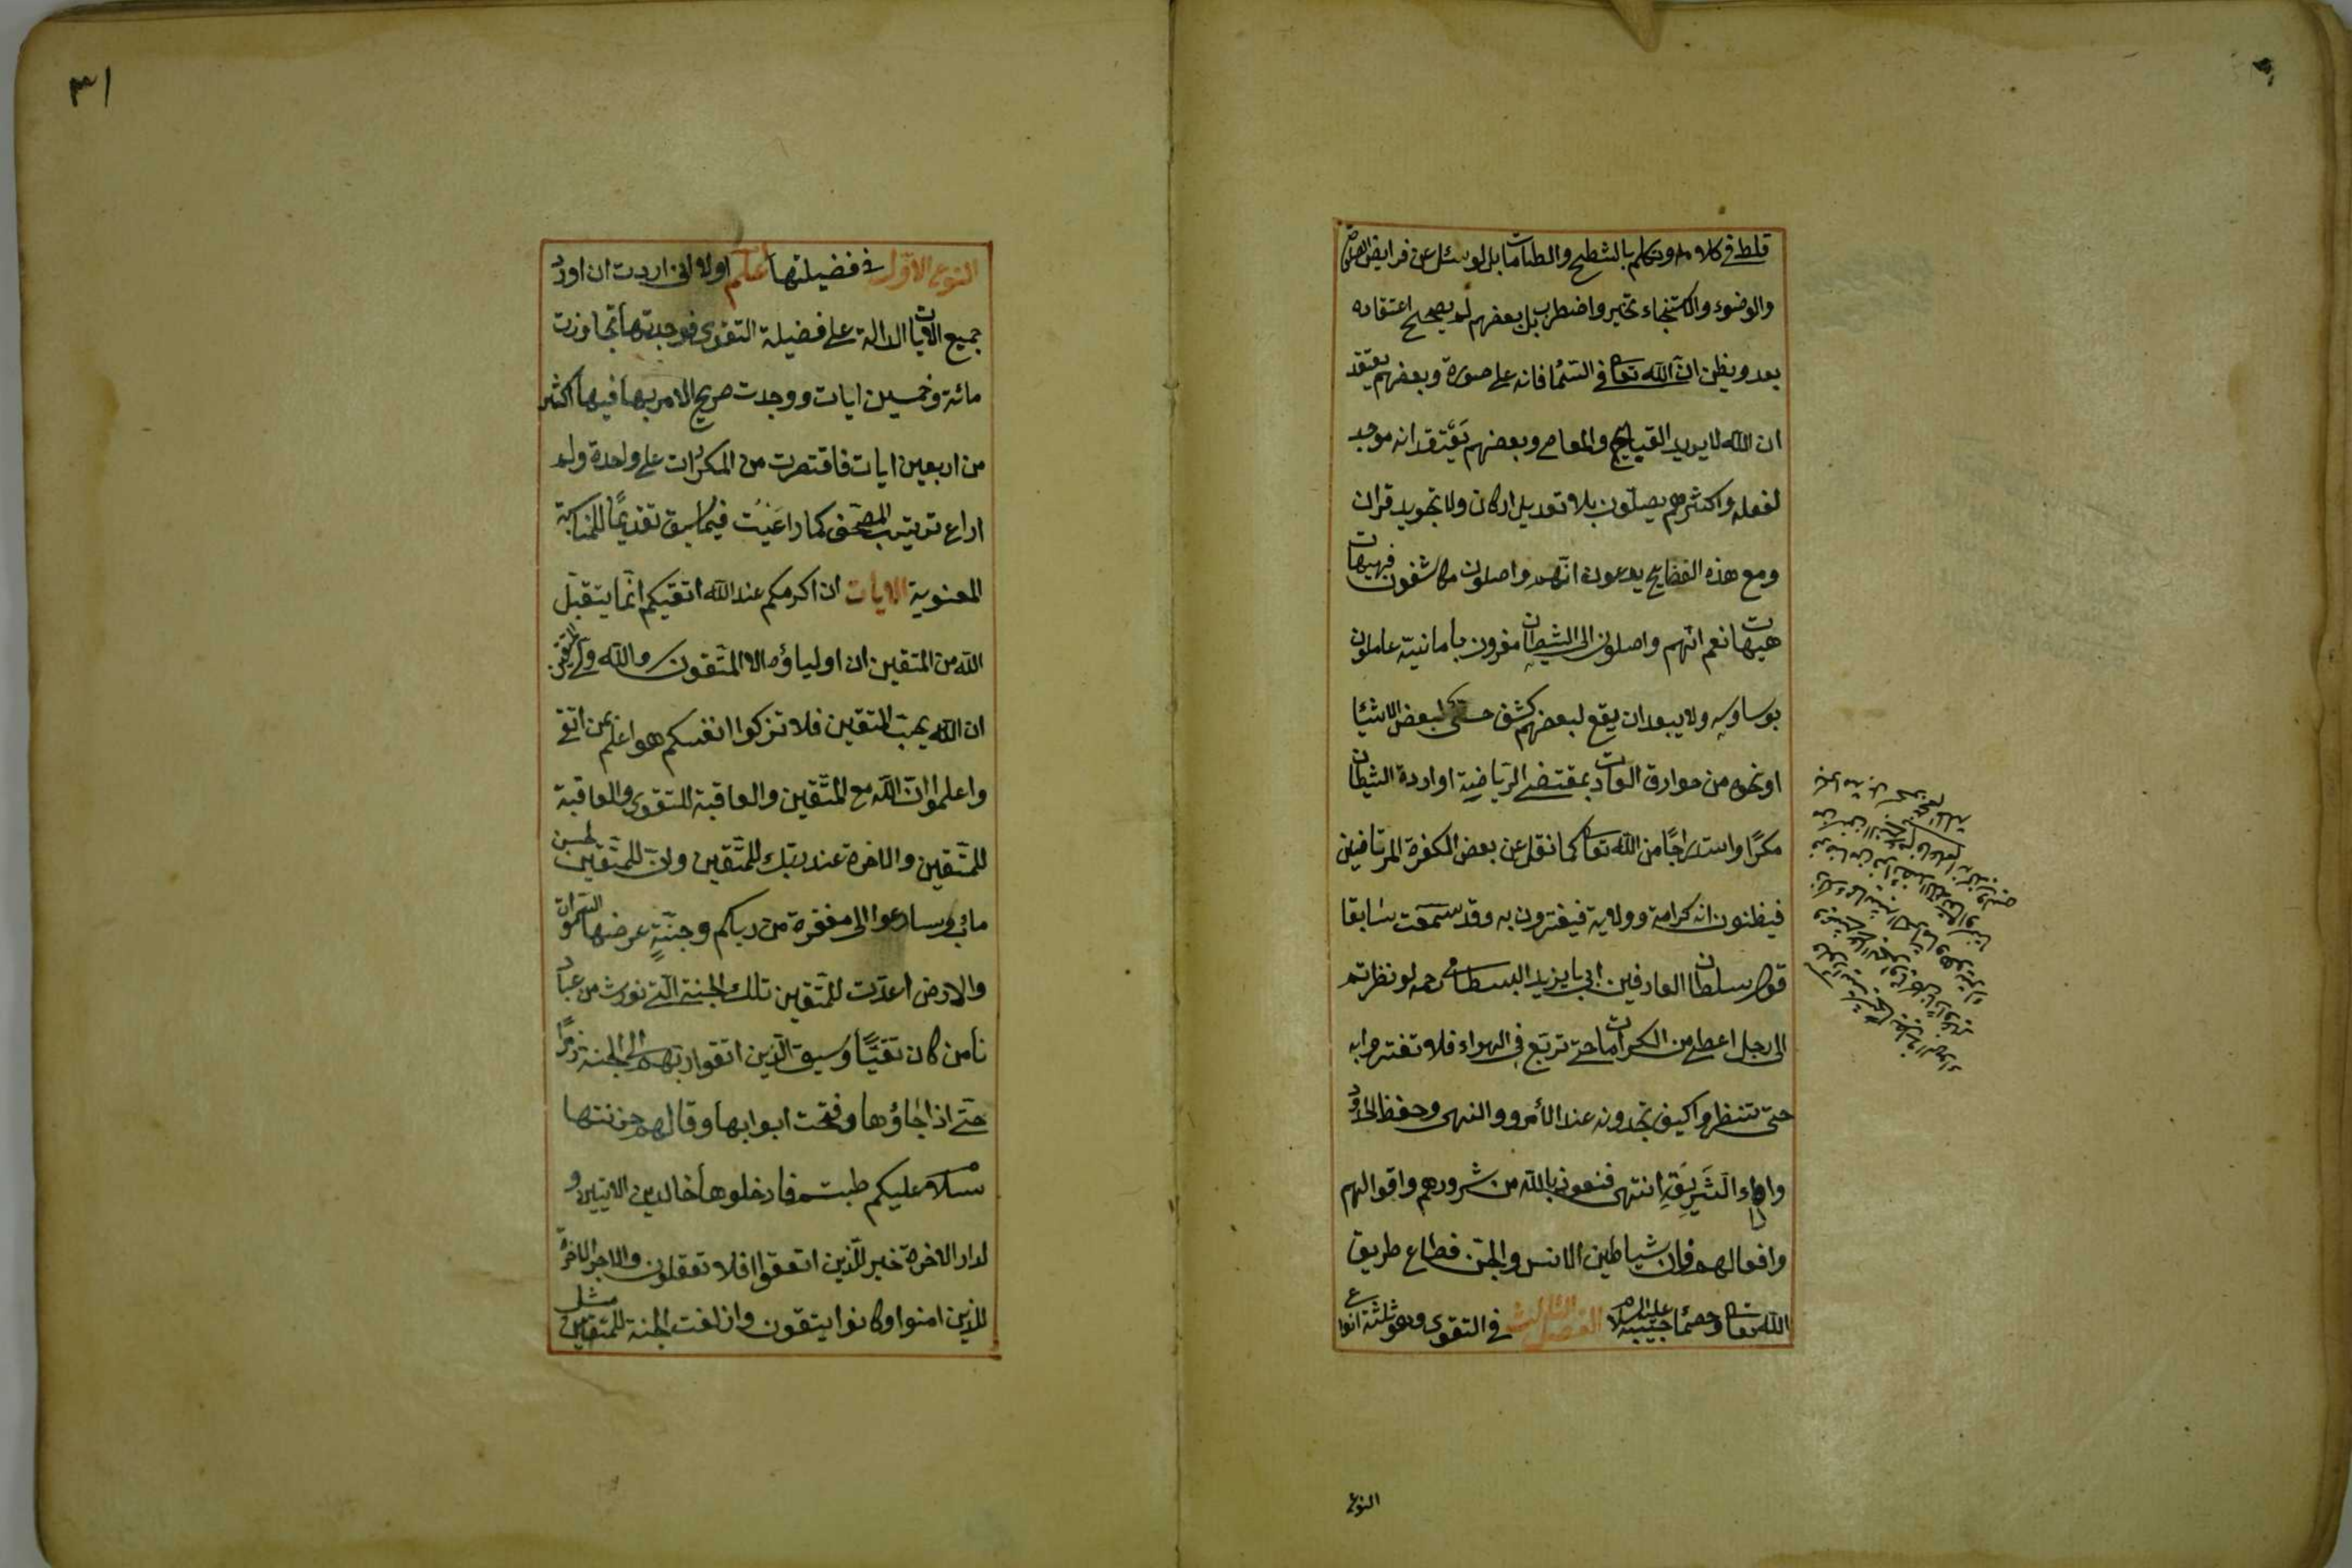 قلط في كلامه وتكلم بالشطح والطامات بل لو سئل عن فرايض الصلوة
والوضوء والاستنجاء تحير واضطرب بل بعضهم لم يصحح اعتقاده
بعد ويظن ان الله تعا في السماء فانه على صورة وبعضهم يعتقد
ان الله لا يريد القبايح والمعاصى وبعضهم يعتقد انه موجد
لفعله واكثرهم يصلّون بلا تعديل اركان ولا تجويد قران
ومع هذه الفضايح يدعون انهم واصلون مكاشفون فهيهات
هيهات نعم انهم واصلون الى الشيطان مغرون بامانيّه عاملون
بوساوسه ولا يبعد ان يقع لبعضهم كشف حسّى لبعض الاشيا
او نحوه من خوارق العادات بمقتضى الرياضية او اردة الشيطان
مكرًا واستدراجًا من الله تعا كما نقل عن بعض الكفرة المرتاضين
فيظنون انه كرامة وولاية فيغترون به وقد سمعت سابقا
قول سلطان العارفين ابي يزيد البسطامى رحمه لو نظرتم
الى رجل اعطى من الكرامات حتى تربّع في الهواء فلا تغتروا به
حتى تنظروا كيف تجدونه عند الأمر والنهى وحفظ الحدود
واداء الشريعة انتهى فنعوذ بالله من شرورهم واقوالهم
وافعالهم فان شياطين الانس والجن قطاع طريق
الله تعا وخصما حبيبه عليه السلام الفصل الثالث في التقوى وهو ثلثة انواع
النوع
٣١
النوع الاوّل في فضيلتها اعلم اولا انى اردت ان اورد
جميع الايات الدالة على فضيلة التقوى فوجدتها تجاوزت
مائة وخمسين ايات ووجدت صريح الامر بها فيها اكثر
من اربعين ايات فاقتصرت من المكررات على واحدة ولم
اراع ترتيب المصحف كما راعيت فيما سبق تقديمًا للمناسبة
المعنوية الايات ان اكرمكم عند الله اتقيكم انّما يتقبّل
الله من المتقين ان اولياؤه الا المتّقون والله ولى المتقين
ان الله يحب المتقين فلا تزكوا انفسكم هو اعلم بمن اتقى
واعلموا ان الله مع المتّقين والعاقبة للتقوى والعاقبة
للمتّقين والاخرة عند ربّك للمتّقين وان للمتّقين لحسن
مائب وسارعوا الى مغفرة من ربكم وجنّةٍ عرضها السموات
والارض اعدّت للمتّقين تلك الجنة التى نورث من عباد
نا من كان تقيًّا وسيق الّذين اتقوا ربهم الى الجنة زمرًا
حتّى اذا جاؤها وفتحت ابوابها وقال لهم خزنتها
سلام عليكم طبتم فادخلوها خالدين الايتين و
لدار الاخرة خير للّذين اتقوا افلا تعقلون والاجر الاخرة
للذين امنوا وكانوا يتقون وازلفت الجنة للمتقين مثل